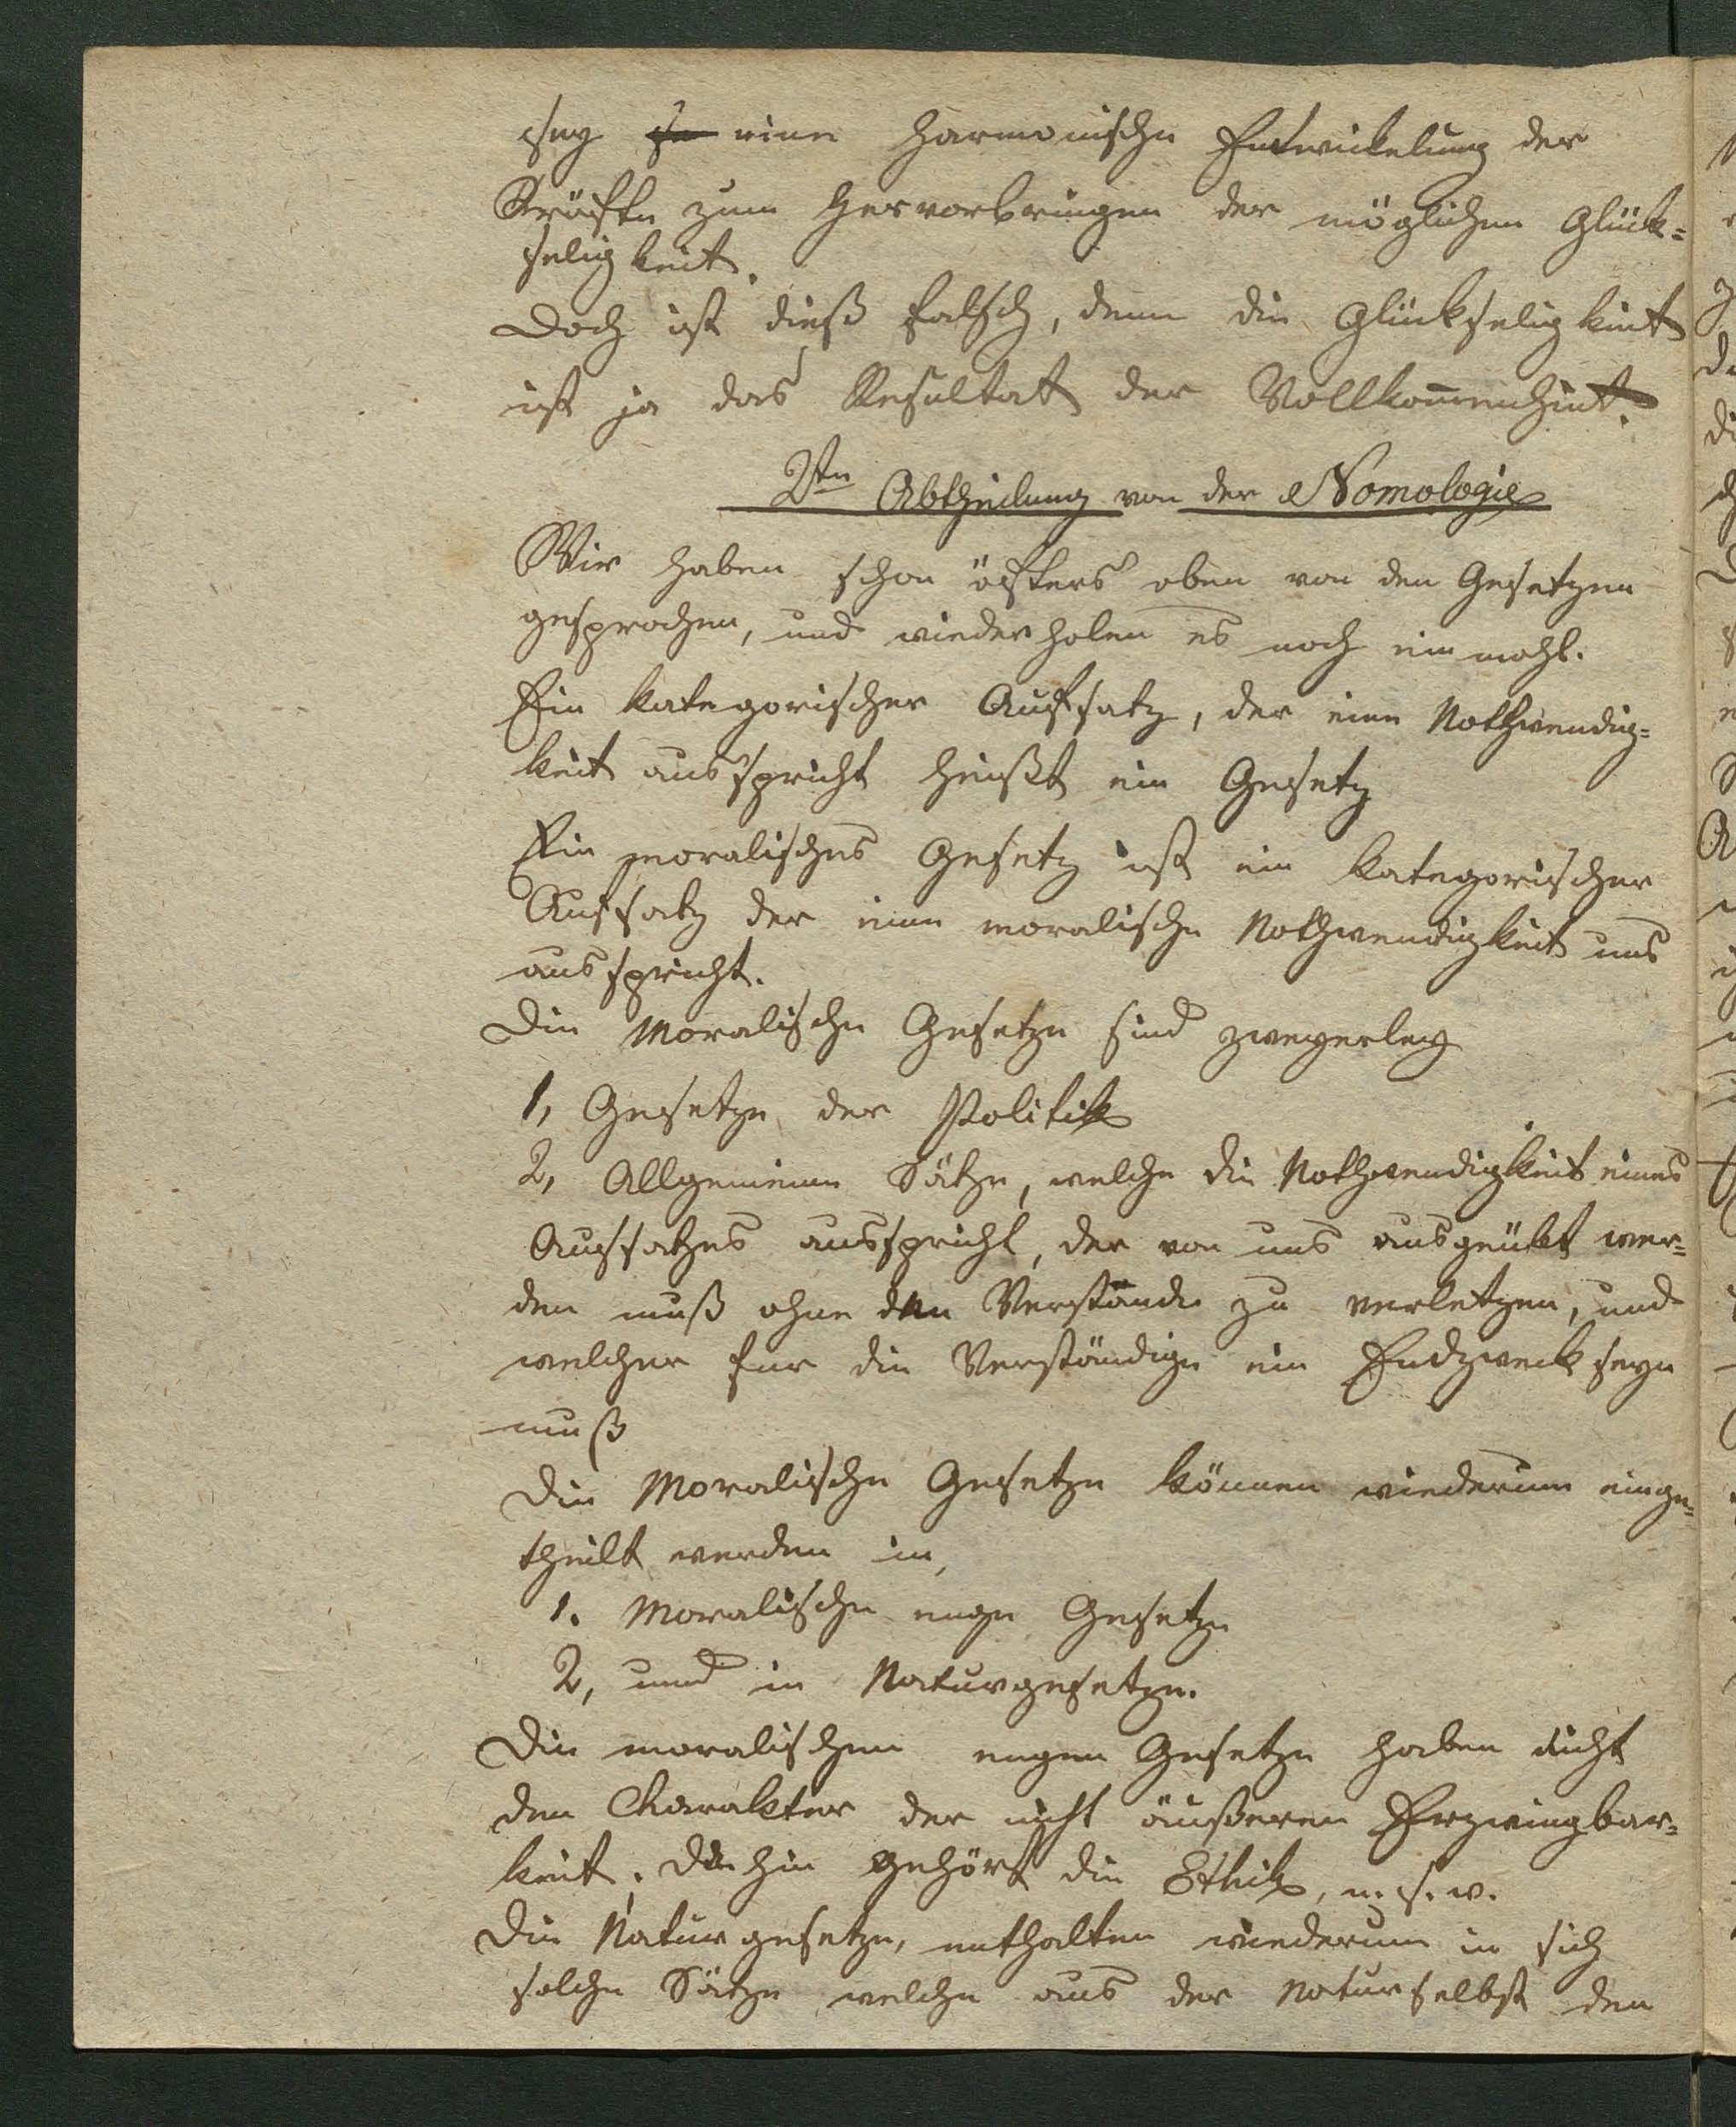 sey eine harmonische Entwickelung der
Kräfte zum Hervorbringen der möglichen Glück=
seligkeit.
Doch ist dieß falsch, denn die Glückseligkeit
ist ja das Resultat der Vollkom̄enheit.
2te Abtheilung von der Nomologie
Wir haben schon öfters oben von den Gesetzen
gesprochen, und wiederholen es noch ein mahl.
Ein kategorischer Aufsatz, der eine Nothwendig=
keit ausspricht heißt ein Gesetz
Ein moralisches Gesetz ist ein kategorischer
Aufsatz der eine moralische Nothwendigkeit uns
ausspricht.
Die Moralische Gesetze sind zweyerley
1, Gesetze der Politik
2, Allgemeine Sätze, welche die Nothwendigkeit eines
Aufsatzes ausspricht, der von uns ausgeübt wer=
den muß ohne den Verstande zu verletzen, und
welcher für die Verständige ein Endzweck seyn
muß
Die Moralische Gesetze können wiederum einge=
theilt werden in,
1. Moralische enge Gesetze
2, und in Naturgesetze.
Die moralischen engen Gesetze haben nicht
den Charakter der nicht äußeren Erzwingbar=
keit. Dahin gehört die Ethik, u. s. w.
Die Naturgesetze, enthalten wiederum in sich
solche Sätze welche aus der Natur selbst den